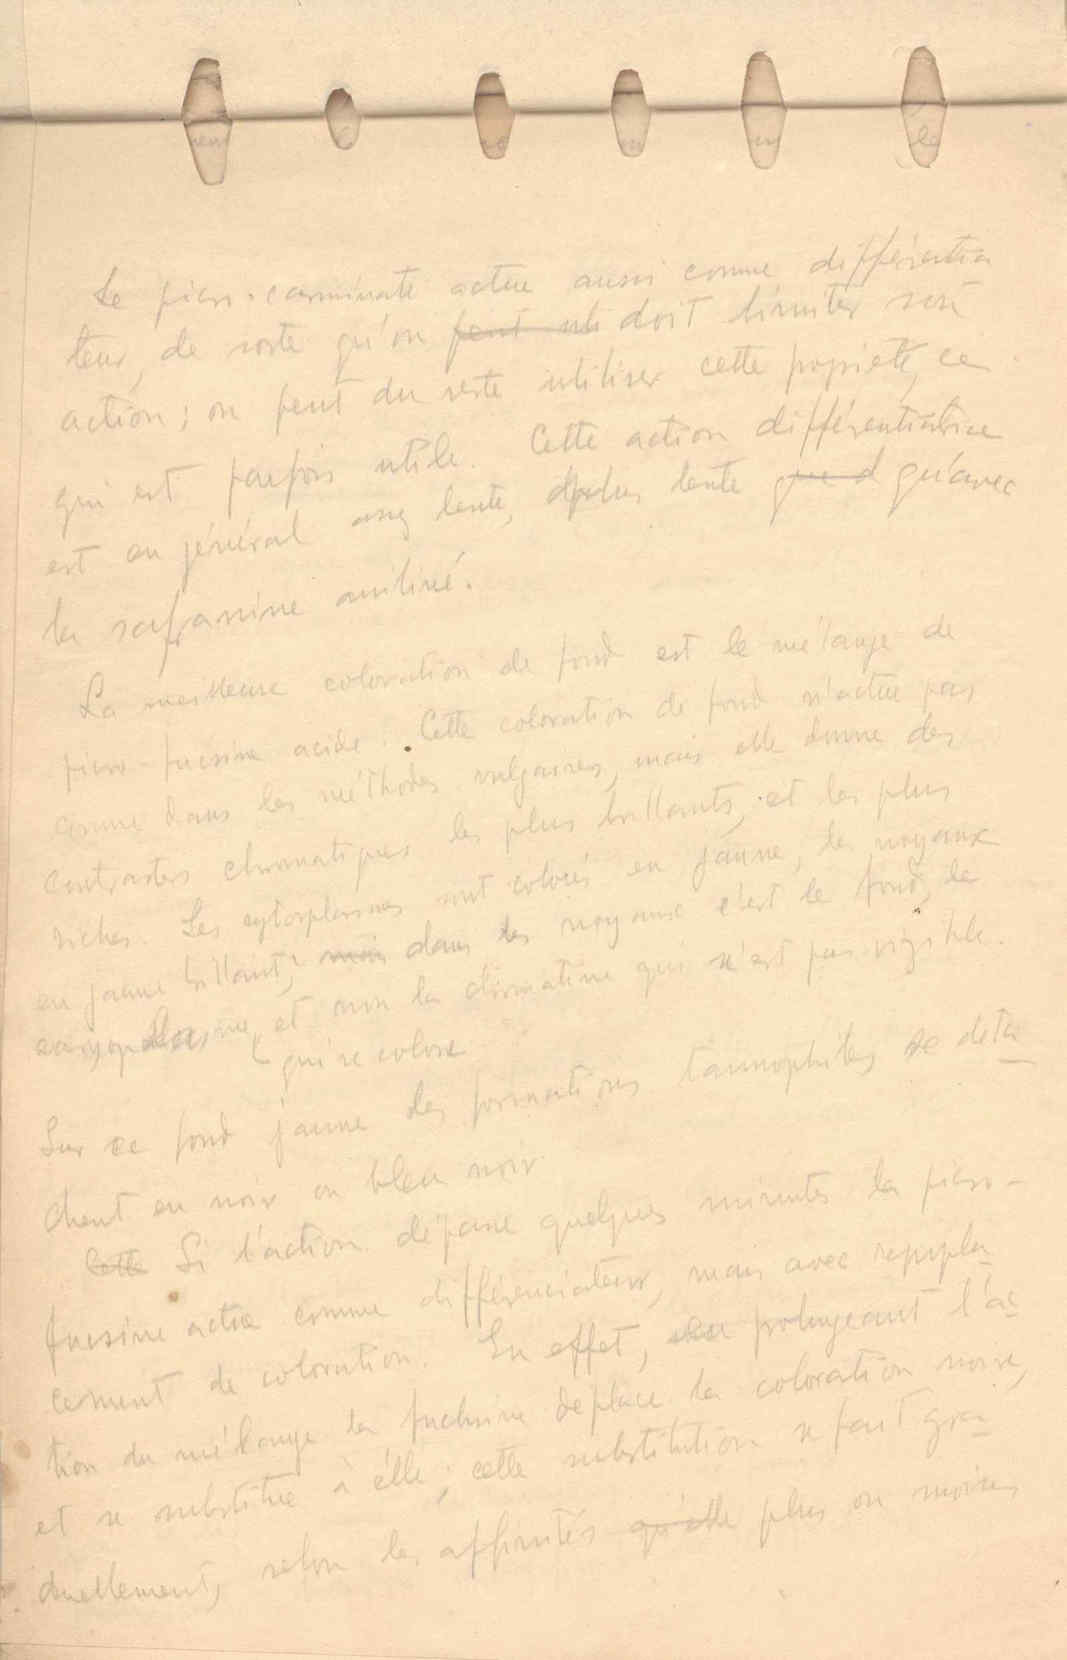 Le picro-carminate actue aussi comme différentia
teur, de sorte qu'on doit limiter son
action; on peut du reste utiliser cette propieté, ce
qui est parfois utile. Cette action différentiatrice
est en général assez lente, plus lente qu'avec
la safranine aniliné.
La meilleure coloration de fond est le mélange de
picro-fucsine acide. Cette coloration de fond n'actue pas
comme dans les méthodes vulgaires, mais elle donne des
contrastes chromatiques les plus brillants, et les plus
riches. Les cytoplasmes sont colorés en jaune, les noyaux
en jaune brillant; dans les noyaux c'est le fond, le
et non la chromatine qui n'est pas visible.
qui se colore
Sur ce fond jaune des formations tannophiles se deta
chent en noir ou bleu noir.
Si l'action dépasse quelques minutes la picro-
fucsine actue comme différenciateur, mais avec rempla
cement de coloration. En effet, prolongeant l'ac
tion du mélange la fuchsine déplace la coloration noire,
et se substitue à elle; cette substitution se fait gra
duellement, selon les affinités plus ou moins